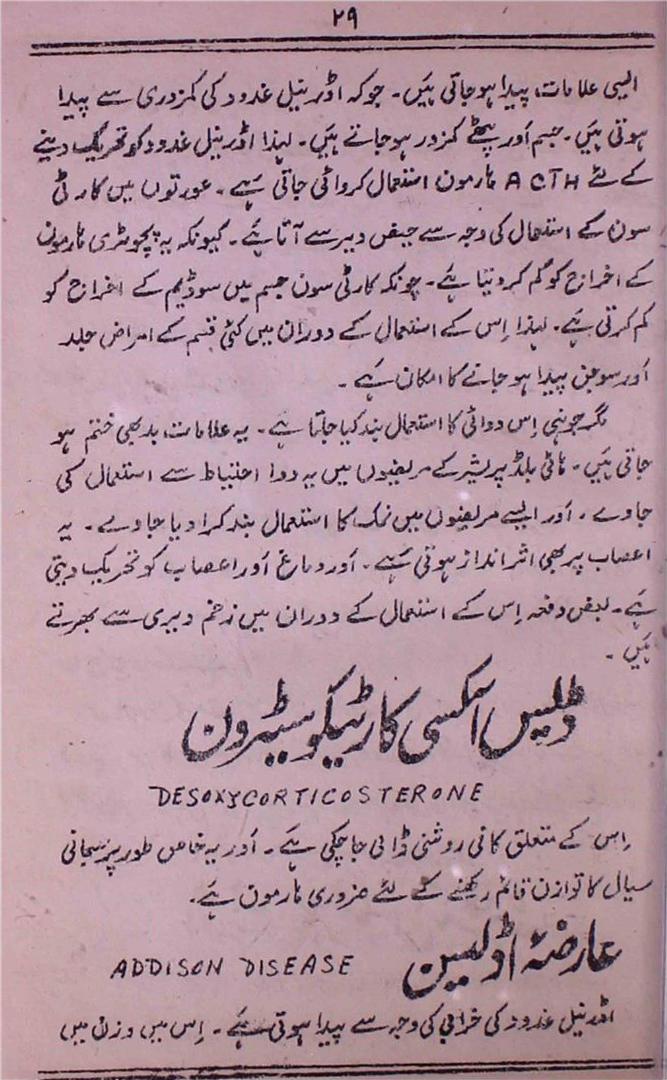 ۲۹
ایسی علامات، پیدا ہو جاتی ہیں۔ جو کہ اڈرینیل غدود کی کمزوری سے پیدا
ہوتی ہیں۔ جسم اور پٹھے کمزور ہو جاتے ہیں۔ لہذا اڈرینیل غدود کو تحریک دینے
کے لئے ACTH ہارمون استعمال کروائی جاتی ہے۔ عورتوں میں کارٹی
سون کے استعمال کی وجہ سے حیض دیر سے آتا ہے۔ کیونکہ یہ پچوئٹری ہارمون
کے اخراج کو کم کر دیتا ہے۔ چونکہ کارٹی سون جسم میں سوڈیم کے اخراج کو
کم کرتی ہے۔ لہذا اِس کے استعمال کے دوران میں کئی قسم کے امراض جلد
اور سوجن پیدا ہو جانے کا امکان ہے۔
مگر جونہی اِس دوائی کا استعمال بند کیا جاتا ہے۔ یہ علامات، بھی ختم ہو
جاتی ہیں۔ ہائی بلڈ پریشر کے مریضوں میں یہ دوا احتیاط سے استعمال کی
جاوے۔ اور ایسے مریضوں میں نمک کا استعمال بند کرا دیا جاوے۔ یہ
اعصاب پر بھی اثر انداز ہوتی ہے۔ اور دماغ اور اعصاب کو تحریک دیتی
ہے۔ بعض دفعہ اِس کے استعمال کے دوران میں زخم دیری سے بھرتے
ہیں۔
ڈلیس اکسی کارٹیکو سیٹرون
DESOXYCORTICOSTERONE
اِس کے متعلق کافی روشنی ڈالی جا چکی ہے۔ اور یہ خاص طور پر
سیال کا توازن قائم رکھنے کے لئے ضروری ہارمون ہے۔
عارضۂ اڈلیسن ADDISON DISEASE
اڈرنیل غدود کی خرابی کی وجہ سے پیدا ہوتی ہے۔ اِس میں وزن میں